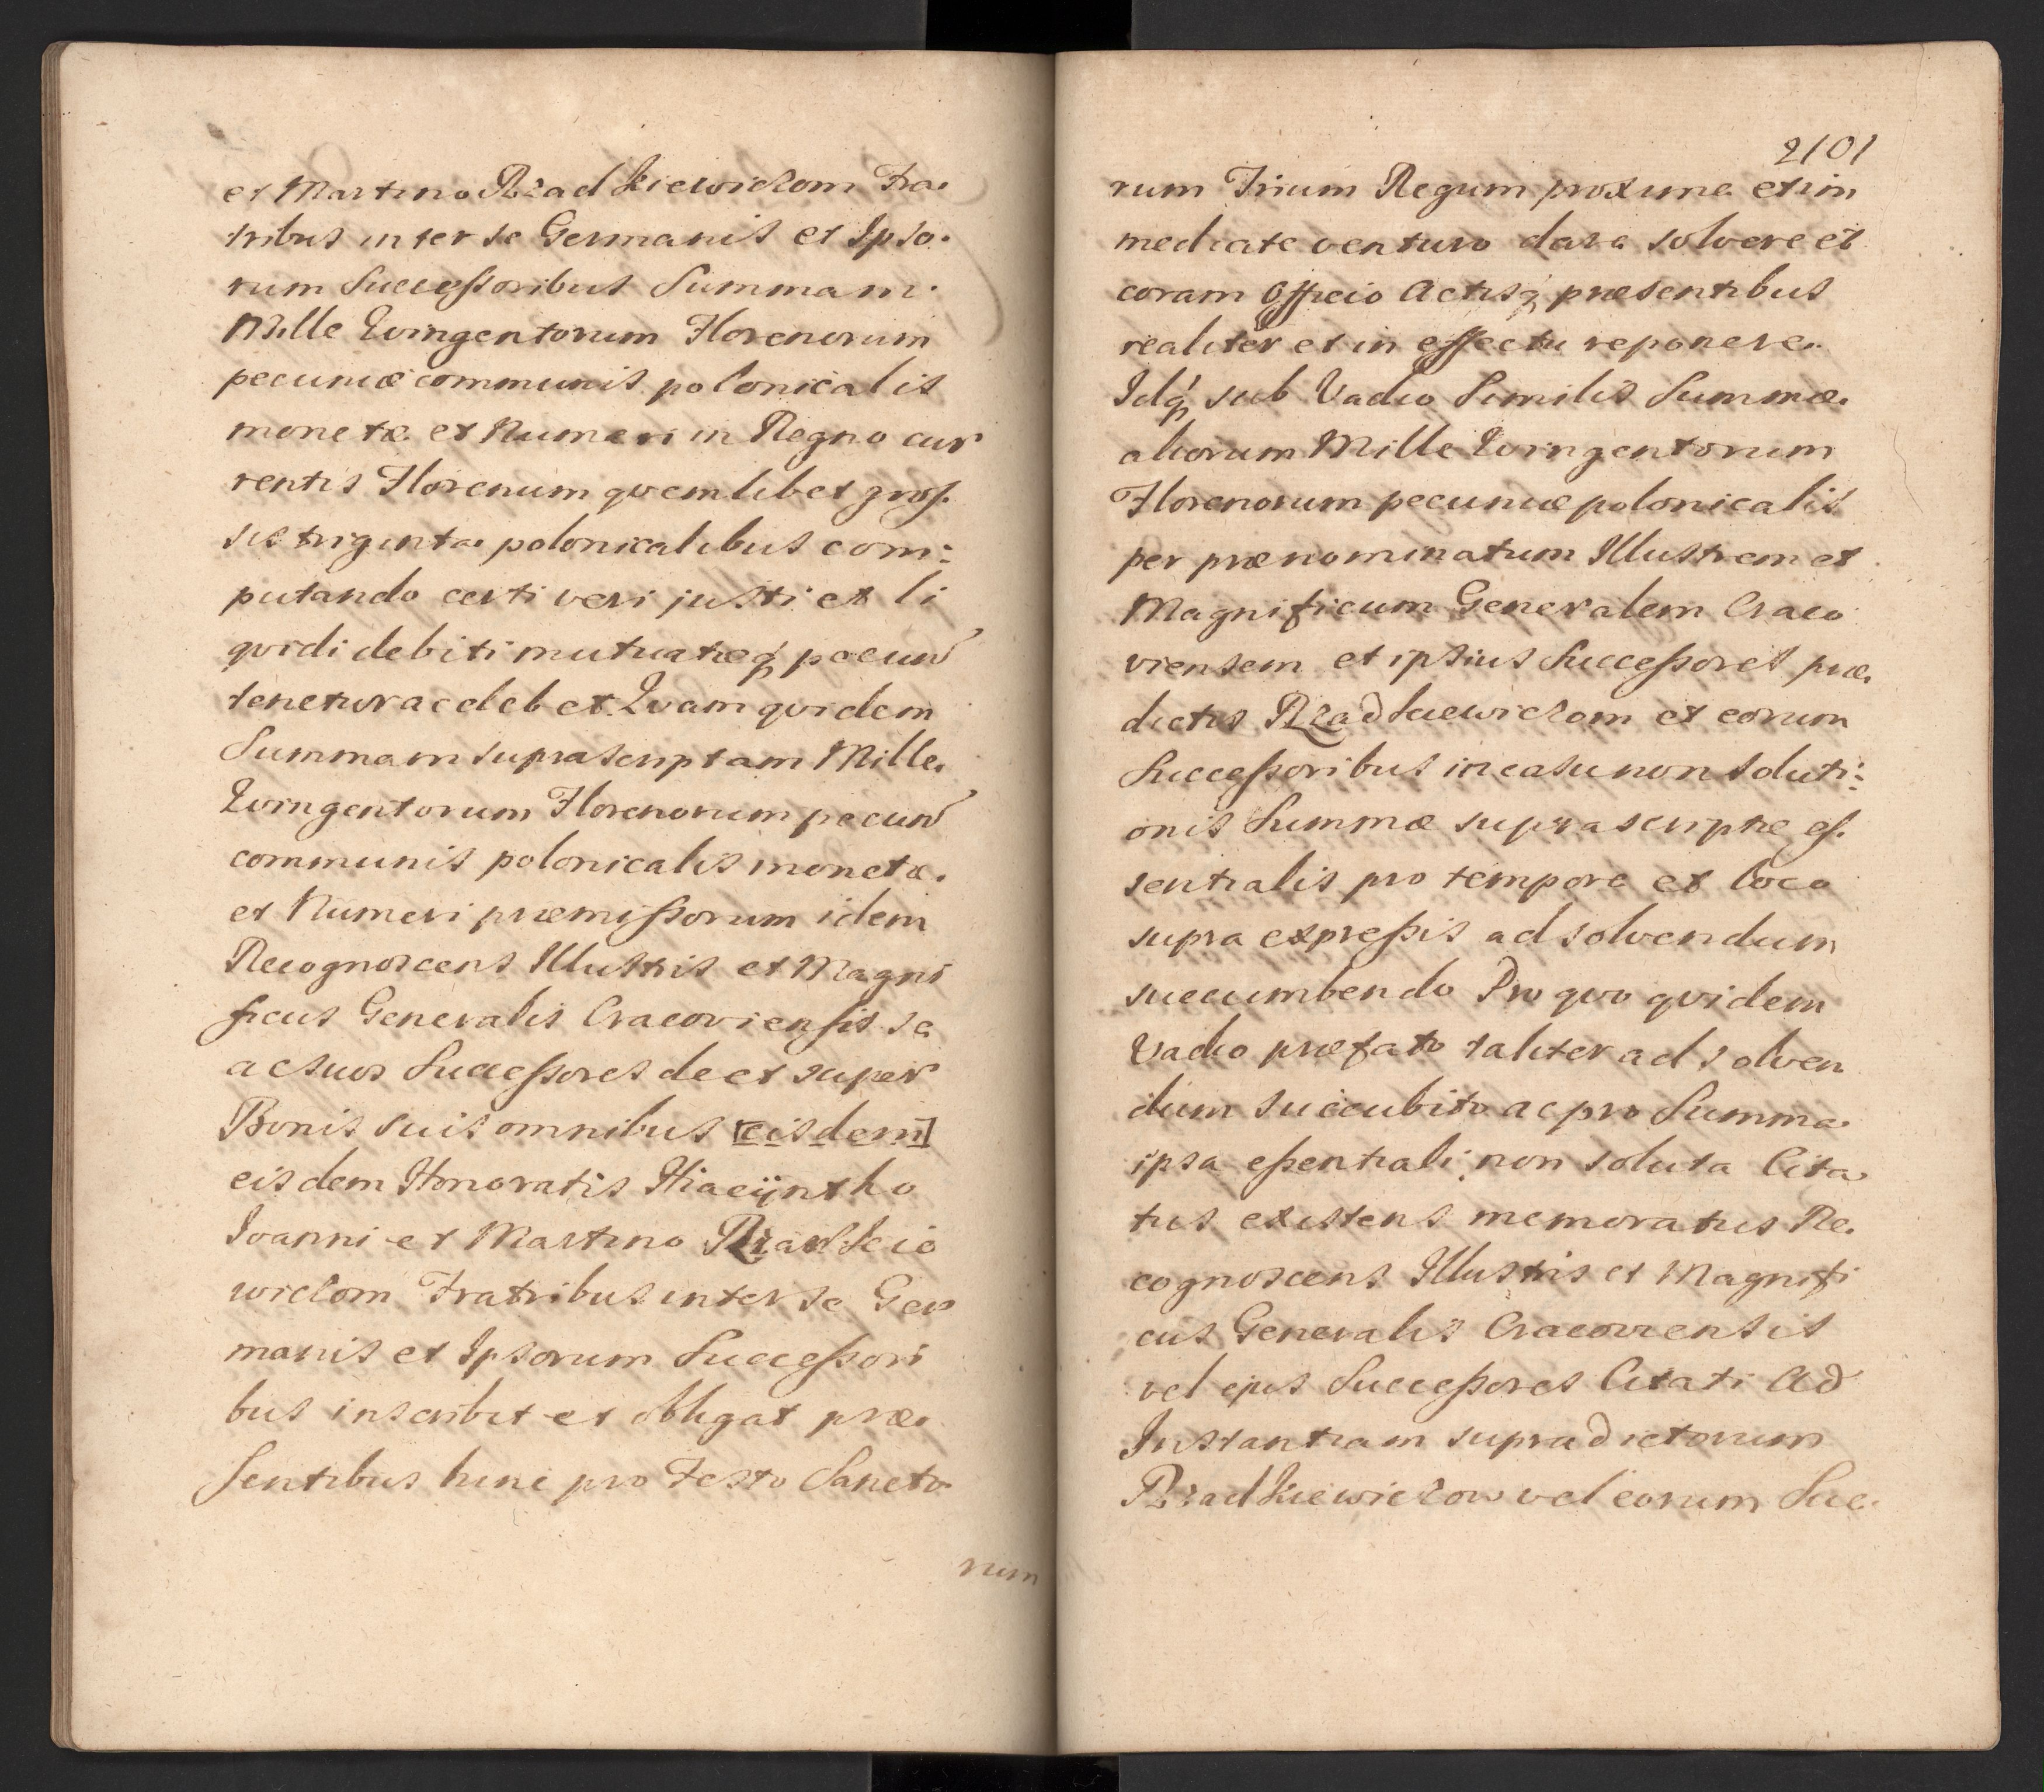 et Martino Rządkiewiczom Fra-
tribus inter se Germanis et Ipso-
rum Successoribus Summam
Mille Qvingentorum Florenorum
pecuniæ communis polonicalis
monetæ et Numeri in Regno cur
rentis Florenum qvemlibet gros-
sis triginta polonicalibus com:
putando certi veri justi et li
qvidi debiti mutuatæq pecun
tenetur ac debet. Qvam qvidem
Summam suprascriptam Mille
Qvingentorum Florenorum pecun
communis polonicalis monetæ
et Numeri præmissorum idem
Recognoscens Illustris et Magni
ficus Generalis Cracoviensis se
ac suos Successores de et super
Bonis suis omnibus [eisdem]
eisdem Honoratis Hiacijntho
Ioanni et Martino Rządkie
wiczom Fratribus inter se Ger
manis et Ipsorum Successori
bus inscribit et obligat præ-
sentibus hinc pro Festo Sancto-
rum
2101
rum Trium Regum proxime et im
mediate venturo dare solvere et
coram Officio Actisq præsentibus
realiter et in effectu reponere.
Idq sub Vadio Similis Summæ
aliorum Mille Qvingentorum
Florenorum pecuniæ polonicalis
per prænominatum Illustrem et
Magnificum Generalem Craco
viensem et ipsius Successores præ-
dictis Rządkiewiczom et eorum
Successoribus in casu non soluti:
onis Summæ suprascriptæ es-
sentialis pro tempore et loco
supra expressis ad solvendum
succumbendo Pro qvo qvidem
Vadio præfato taliter ad solven
dum succubito ac pro Summa
ipsa essentiali non soluta Cita
tus existens memoratus Re-
cognoscens Illustris et Magnifi
cus Generalis Cracoviensis
vel ejus Successores Citati Ad
Instantiam supradictorum
Rządkiewiczow vel eorum Suc-